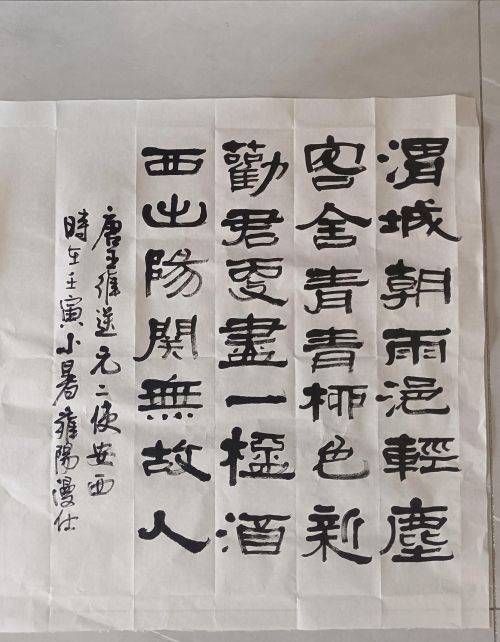 渭城朝雨浥輕塵
客舍青青柳色新
勸君更盡一桮酒
西出陽関無故人
唐王維送元二使安西
時在壬寅小暑雍陽漫仕